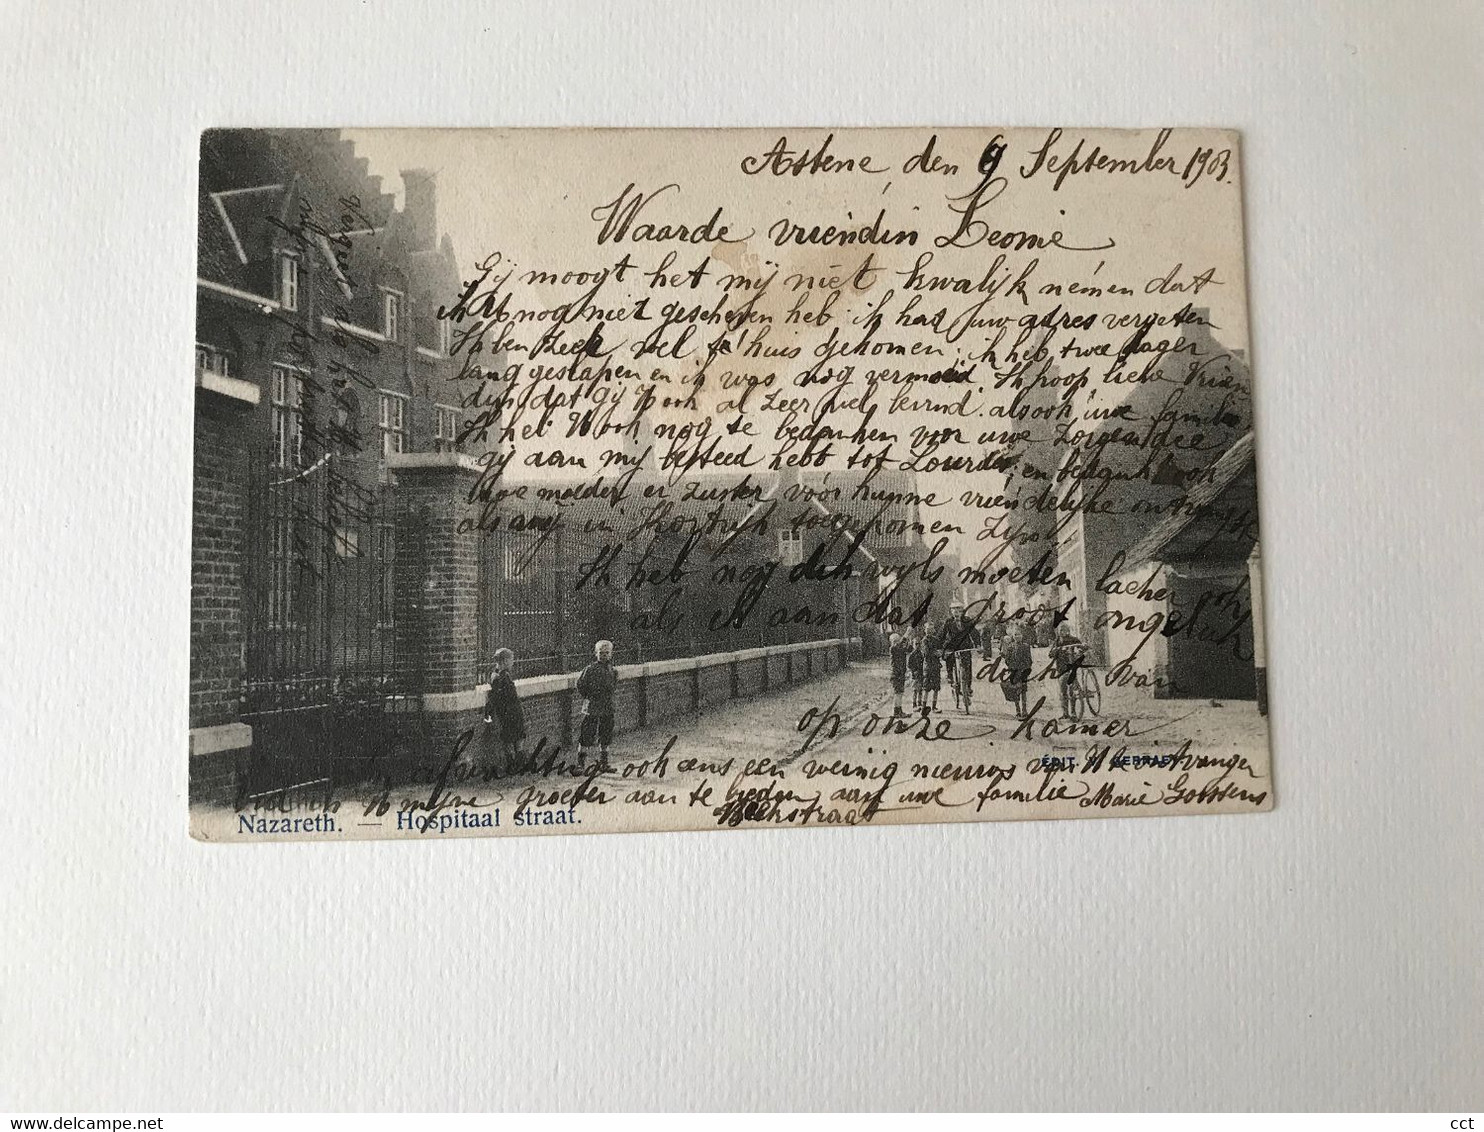 Astene, den 9 September 1903.
Waarde vriendin Leonie
Gij moogt het mij niet kwalijk nemen dat
ik U nog niet geschreven heb: ik had uw adres vergeten
Ik ben zeer wel t'huis gekomen; ik heb twee dagen
lang geslapen en ik was nog vermoeid. Ik hoop lieve vrien
din dat gij U ook al zeer wel bevind. alsook uwe familie
Ik heb U ook nog te bedanken voor uwe zorgen die
gij aan mij besteed hebt tot Lourdes; en bedank ook
uwe moeder en zuster vóór hunne vriendelijke
als wij in Kortrijk toegekomen zijn.
Ik heb nog dikwijls moeten lachen ook
als ik aan dat groot ongeluk
dacht van
op onze kamer
afwachting ook eens een weinig nieuws van U te ontvangen
U mijne groeten aan te bieden aan uwe familie Marie Goossens
straat
ÉDIT.
Nazareth. — Hospitaal straat.